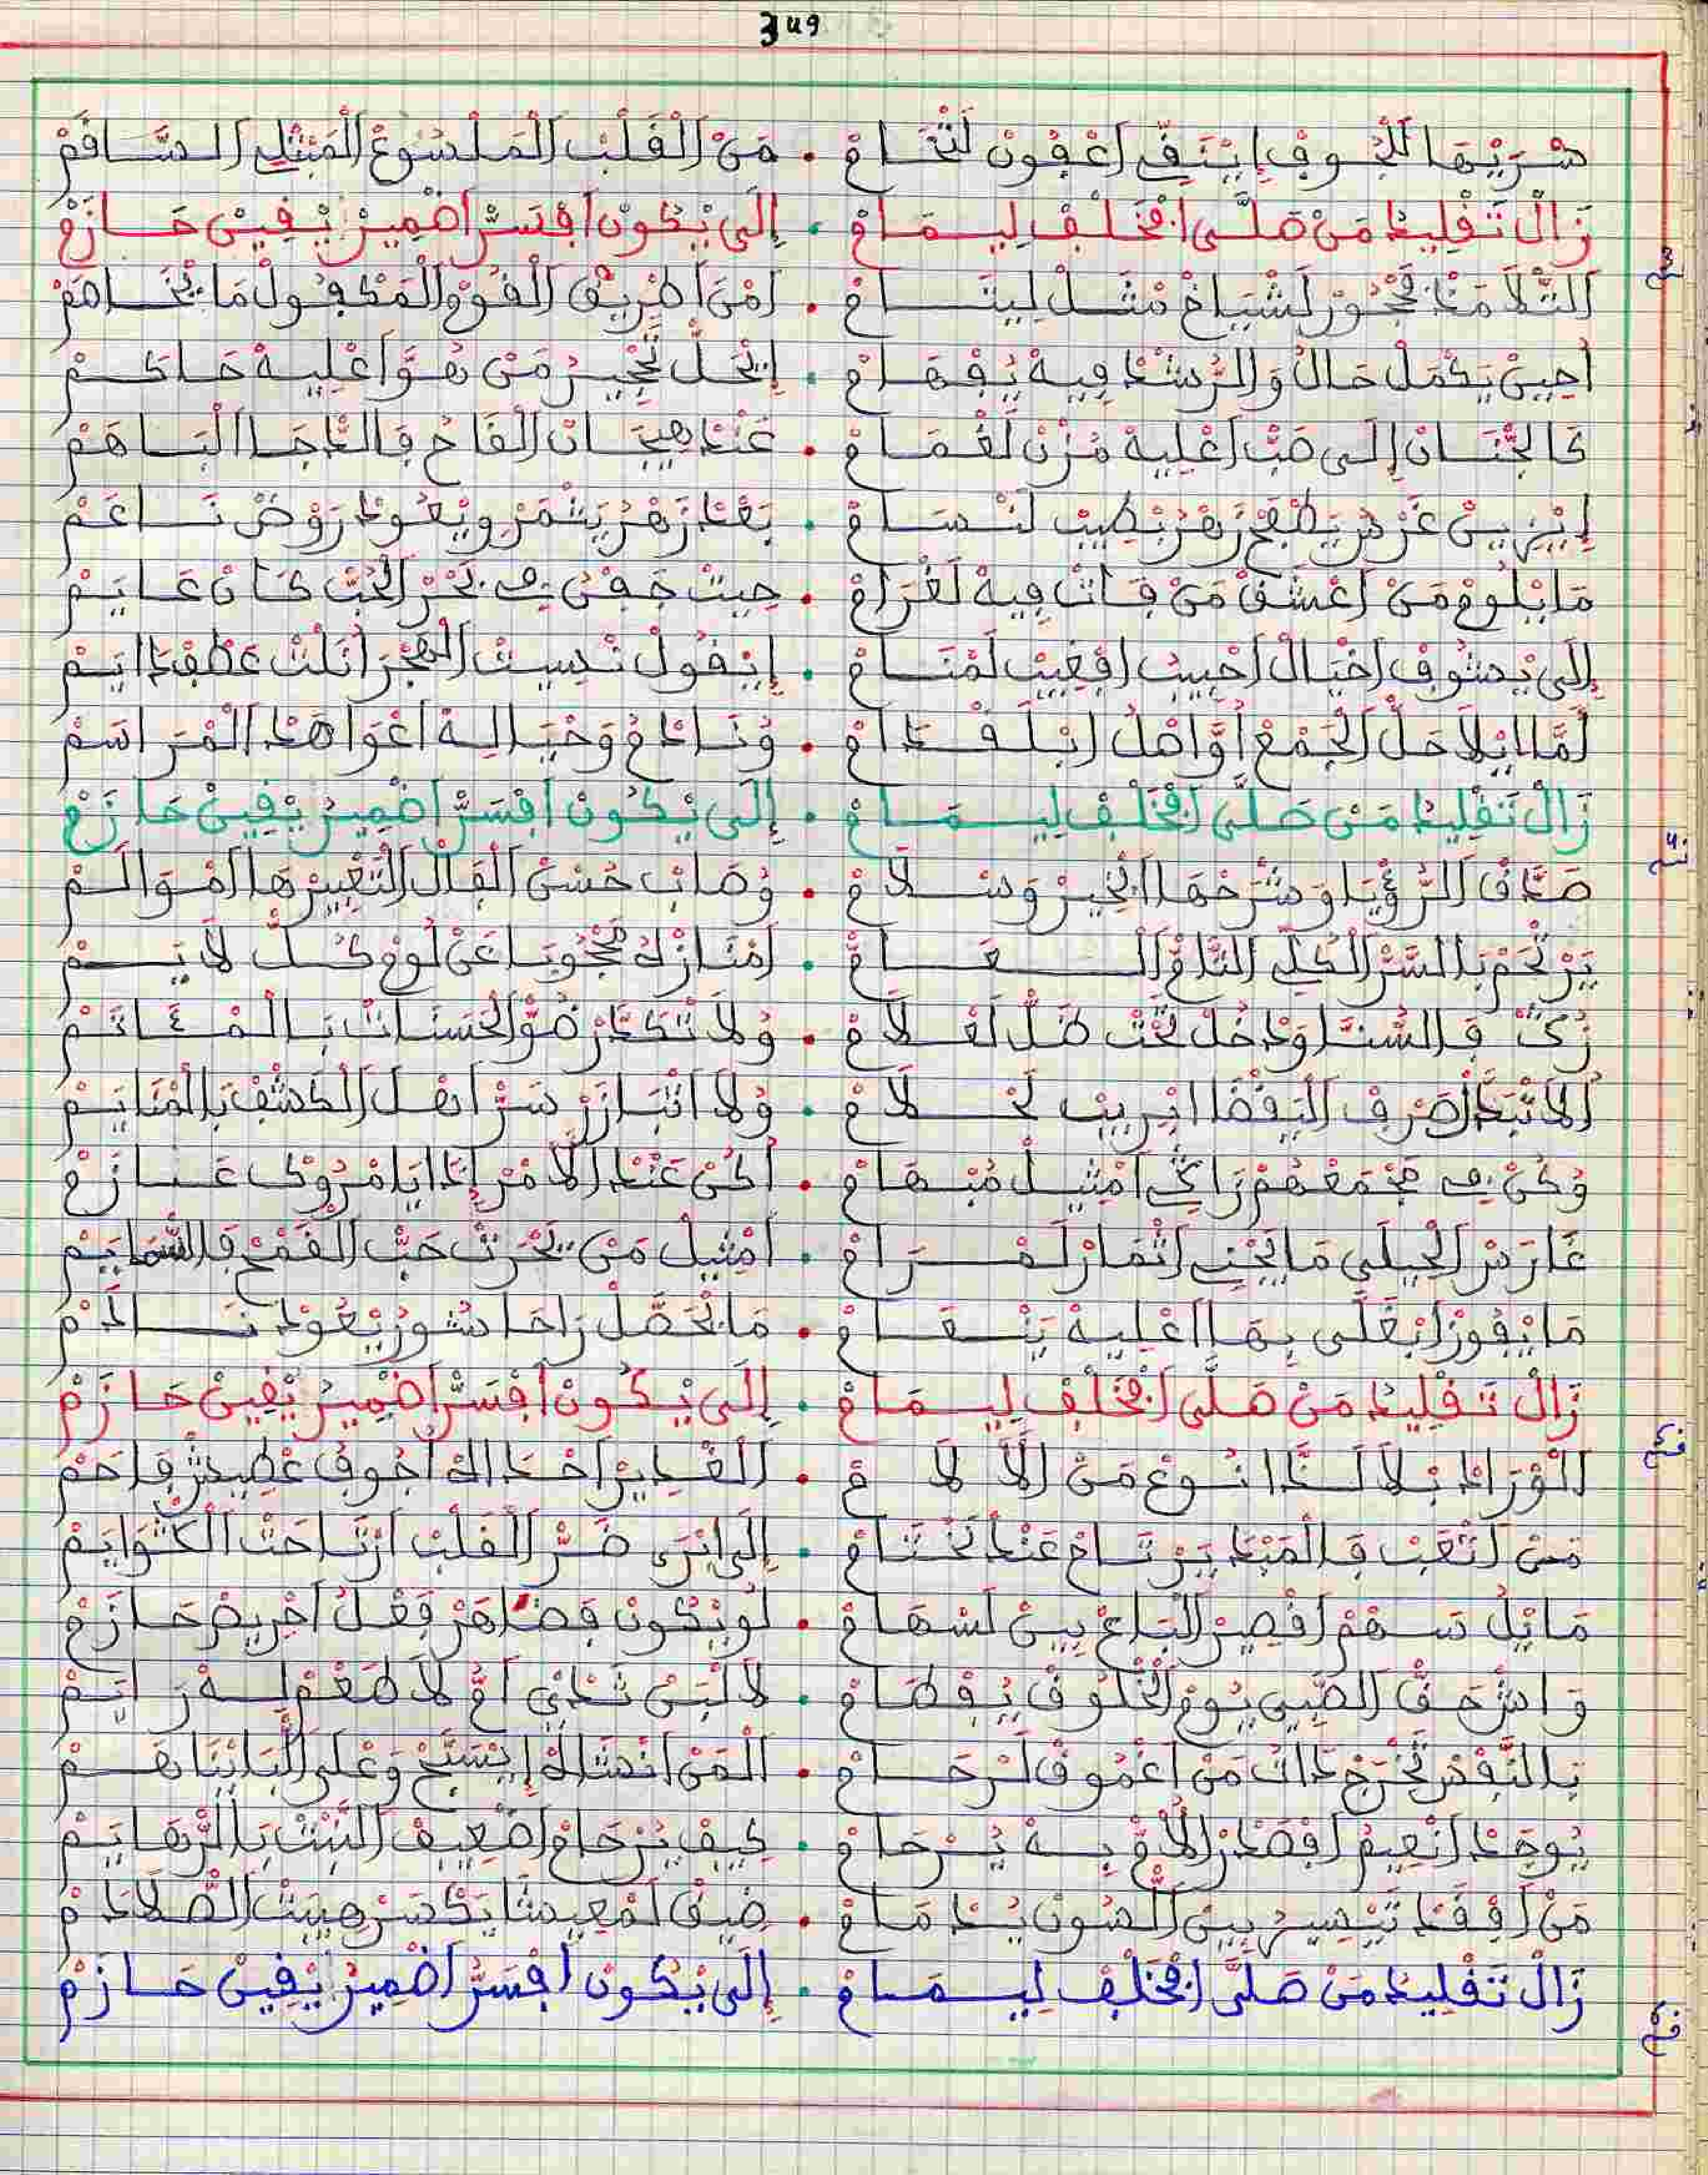 349
شَرْبْهَا لَلْجُوفْ إِيْنَقِّي اعْفُونْ لَثْخَامْ . مَنْ الْقَلْبْ الْمَلْسُوعْ الْمَبْتْلِي السَّاقَمْ
زَالْ تَقْلِيدْ مَنْ صَلَّى افْخَلْفْ لِيمَامْ . إِلَى يْكُونْ افْسَرّْ اضْمِيرْ يْقِينْ حَازَمْ
التّْلَامَدْ فْحْجُورْ لَشْيَاخْ مْثَلْ لِيتَامْ . امْنَ اطْرِيقْ الْقُومْ الْمَكْفُولْ مَا يْخَاصَمْ
احِينْ يَكْمَلْ حَالُ وَالرُّشْدْ فِيهْ يُفْهَامْ . إِنْحَلّْ تَحْجِيرْ مَنْ هُوَّ اعْلِيهْ حَاكَمْ
كَالْجْنَانْ إِلَى صَبّْ اعْلِيهْ مُزْنْ لَغْمَامْ . عَنْدْ هِيجَانْ الْقَاحْ فَالدّْجَا الْبَاهَمْ
إِيْزْهِينْ غَرْسُ يَطْفَحْ زَهْرُ يْطِيبْ لَنْسَامْ . بَعْدْ زَهْرُ يَثْمَرْ وِيْعُودْ رَوْضْ نَاعَمْ
مَا يْلُومْ مَنْ اعْشَقْ مَنْ فَاتْ فِيهْ لَغْرَامْ . حِيتْ جَفْنُ فِي بَحْرْ الْحُبّْ كَانْ عَايَمْ
إِلَى يْشُوفْ اخْيَالْ احْبِيبُ افْغِيبْ لَمْنَامْ . إِيْقُولْ نْسِيتْ الْهْجَرْ انَلْتْ عَطْفْ دَايَمْ
لَمَّا ايْلَا حَلّْ الْجَمْعْ اوَّاصْلُ ابْلَقْدَامْ . وْنَادَمْ وَخْيَالِهْ اغْوَاهَدْ الْمْرَاسَمْ
زَالْ تَقْلِيدْ مَنْ صَلَّى افْخَلْفْ لِيمَامْ . إِلَى يْكُونْ افْسَرّْ اضْمِيرْ يْقِينْ حَازَمْ
صَدَّقْ الرُّؤْيَا وَشْرَحْهَا ابْخِيرْ وَسْلَامْ . وْصَابْ حُسْنْ الْفَالْ التَّعْبِيرْهَا امْوَالَمْ
يَرْتْحَمْ بَالسَّرّْ الْكُلِّي التَّامْ الْعَامْ . امْنَازْلُ مَحْجُوبَا عَنْ لُومْ كُلّْ لَايَمْ
زُكّْ فَالسُّنَّا وَدْخُلْ تَحْتْ ظَلّْ لَعْلَامْ . وْلَا تْكَدَّرْ ضَوّْ الْحَسَنَاتْ بَالْمْئَاتَمْ
لَا تْبَدَّلْ صَرْفْ الْيَقْضَا ابْرِيبْ لَحْلَامْ . وْلَا اتْبَارَزْ سَرّْ اهْلْ الْكَشْفْ بَالْمْنَايَمْ
وْكُنْ فِي مَجْمَعْهُمْ زَاكِي امْثِيلْ مُبْهَامْ . اكُنْ عَنْدْ الَامْرْ إِدَا يَامْرُوكْ عَازَمْ
غَارَسْ الْحِيلَى مَا يَجْنِي اثْمَارْ لَمْرَامْ . امْثِيلْ مَنْ يَحْرَثْ حَبّْ الْقَمْحْ فَالسّْمَايَمْ
مَا يْفُوزْ ابْغَلَّى بِهَا اعْلِيهْ يَنْعَامْ . مَا يْحَصَّلْ رَاحَا شُورْ يْعُودْ نَادَمْ
زَالْ تَقْلِيدْ مَنْ صَلَّى افْخَلْفْ لِيمَامْ . إِلَى يْكُونْ افْسَرّْ اضْمِيرْ يْقِينْ حَازَمْ
الْوْرَادْ بْلَا لَدَّا نُوعْ مَنْ الَالَامْ . الْغْدِيرْ احْدَاكْ اجُوفْ عْطِيشْ فَاحَمْ
مَنْ اتْعَبْ فَالْمَبْدَ يَرْتَاحْ عَنْدْ تَخْتَامْ . إِلَى ابْرَى ضَرّْ الْقَلْبْ ارْتَاحَتْ الْكْتَوَايَمْ
مَا يْلُ سَهْمْ اقْصِيرْ الْبَاعْ بِينْ لَسْهَامْ . لُو يْكُونْ فَصْ اهَرْ فَعْلْ احْرِيصْ حَازَمْ
وَاشْ حَقّْ الصّْبِي يُومْ الْخْلُوقْ يُفْطَامْ . لَا لْبَنْ تَدْيْ امّْ لَا طْعَمْ لِهْ رَايَمْ
بَالنَّفْسْ تَخْرَجْ دَاتْ مَنْ اعْمُوقْ لَرْحَامْ . الْمَنْ انْشَاكْ إِيْسَبَّحْ وَعْلَى الْبَا يْنَاهَمْ
يُوجَدْ انْعِيمُ افْصَدْرْ الَامّْ بِهْ يُرْحَامْ . كِيفْ يُرْحَامْ اضْعِيفْ النَّبْتْ بَالرّْهَايَمْ
مَنْ افْقَدْ تَيْسِيرُ بِينْ الصُّونْ يُدْمَامْ . ضِيقْ لَمْعِيشَا يَكْسَرْ هِيبْتْ الصّْلَادَمْ
زَالْ تَقْلِيدْ مَنْ صَلَّى افْخَلْفْ لِيمَامْ . إِلَى يْكُونْ افْسَرّْ اضْمِيرْ يْقِينْ حَازَمْ